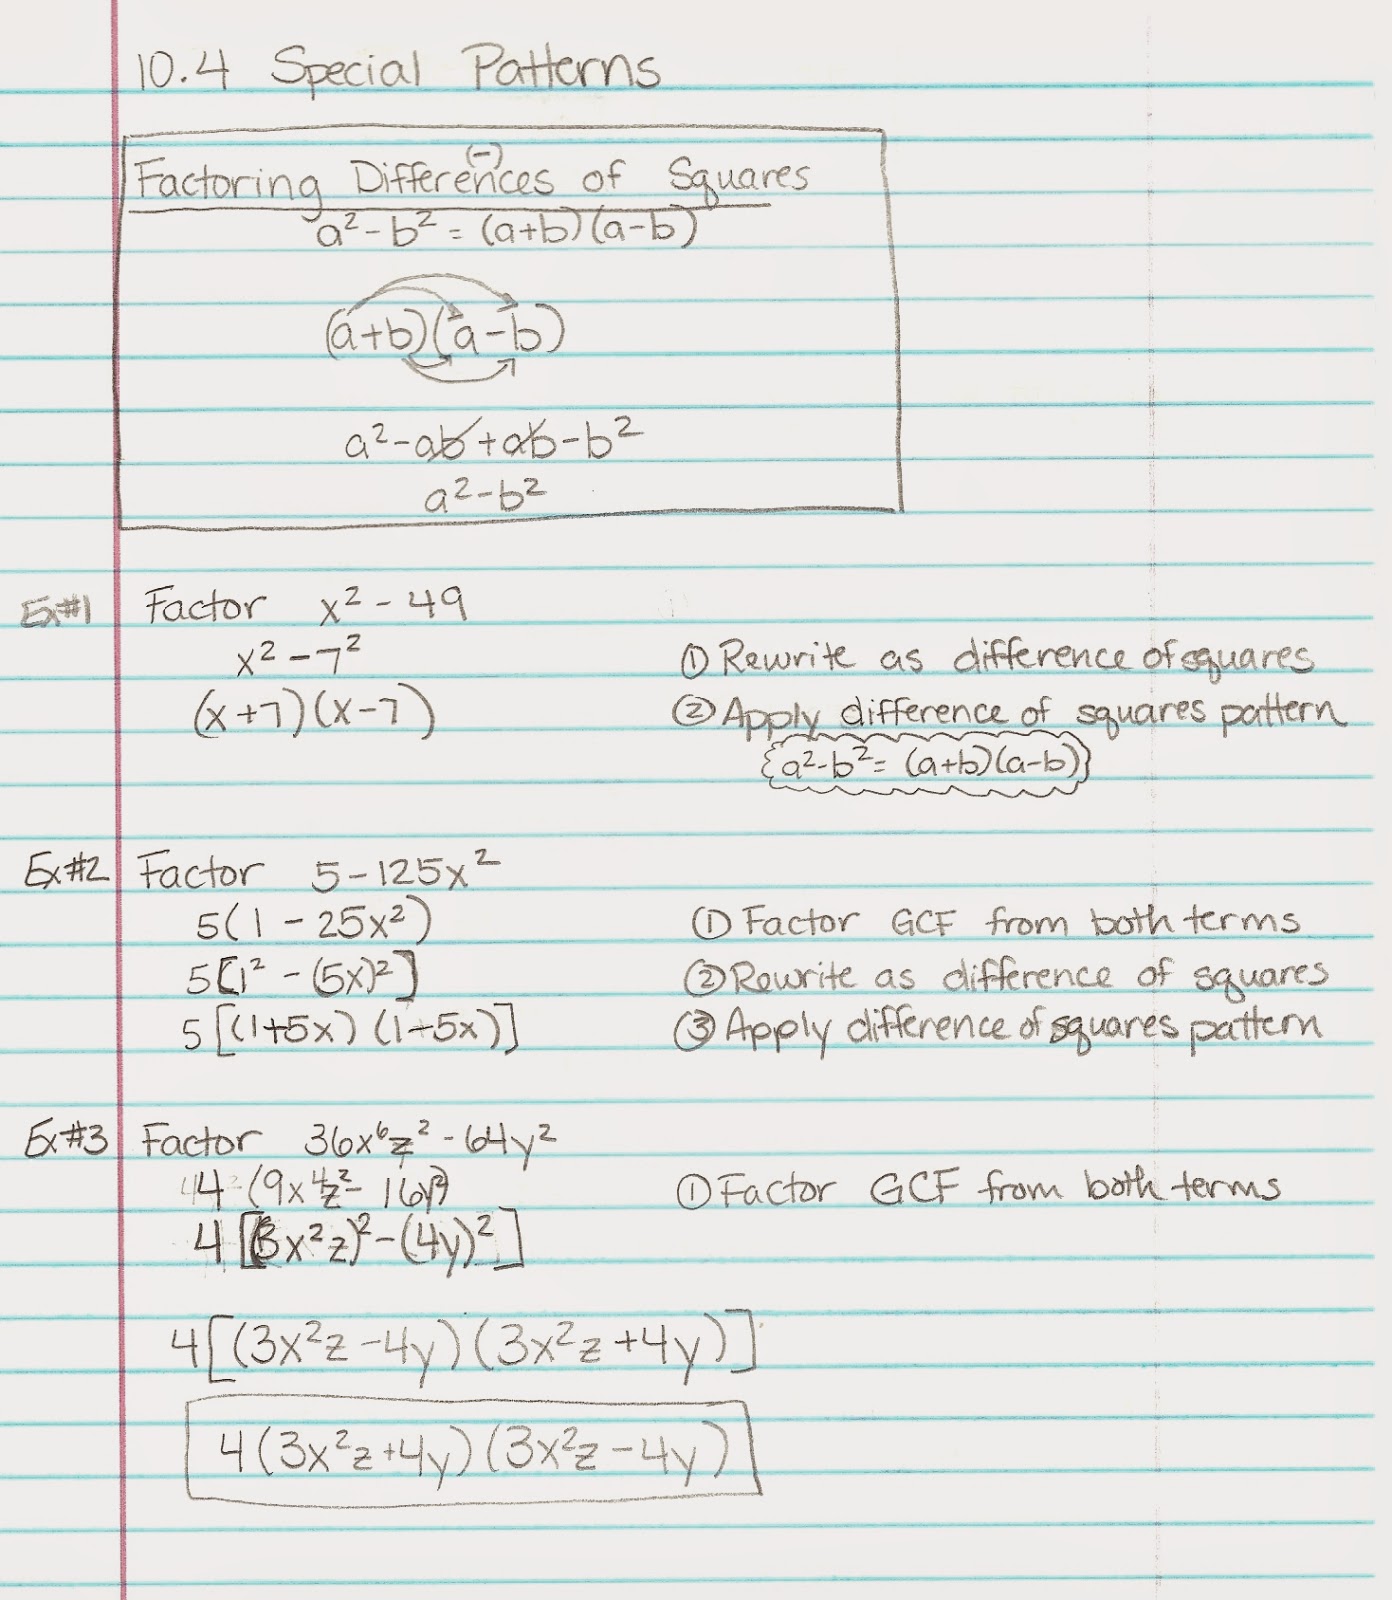 10.4 Special Patterns
(-)
Factoring Differences of Squares
a² - b² = (a+b)(a-b)
(a+b)(a-b)
a² - ab + ab - b²
a² - b²
Ex#1 Factor x² - 49
x² - 7² ① Rewrite as difference of squares
(x+7)(x-7) ② Apply difference of squares pattern
{a² - b² = (a+b)(a-b)}
Ex#2 Factor 5 - 125x²
5(1 - 25x²) ① Factor GCF from both terms
5[1² - (5x)²] ② Rewrite as difference of squares
5[(1+5x)(1-5x)] ③ Apply difference of squares pattern
Ex#3 Factor 36x⁶z² - 64y²
4(9x⁴z² - 16y²) ① Factor GCF from both terms
4[(3x²z)² - (4y)²]
4[(3x²z - 4y)(3x²z + 4y)]
4(3x²z + 4y)(3x²z - 4y)